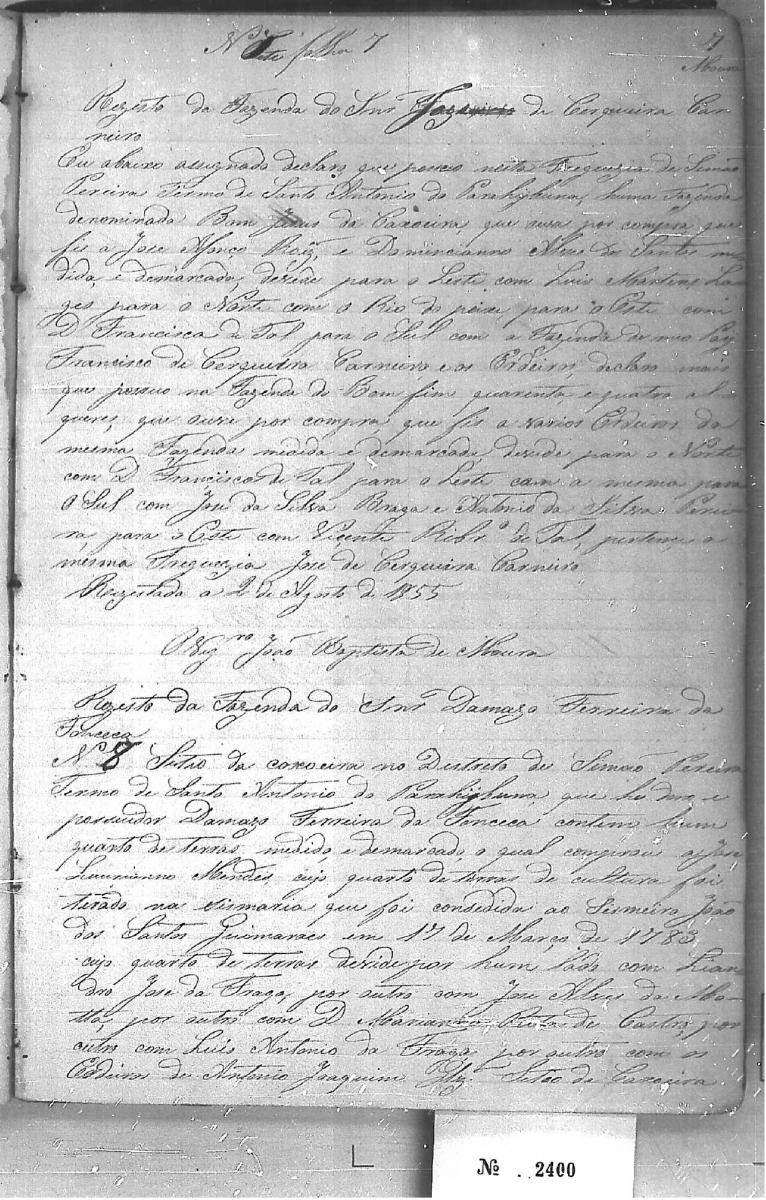 Nº 7 folha 7
4
Moura
Rezisto da Fazenda do Snr de Cerqueira Car
neiro
Eu abaixo assignado declaro que possuo nesta Freguezia de Simão
Pereira Termo de Santo Antonio do Parahybuna, huma Fazenda
denominada Bom Jesus da Caxoeira, que ouve por compra que
fis a Jose Afonço Roiz, e Domincianno Alves dos Santos me
dida, e demarcada, devide para o Leste com Luis Martins La
ges para o Norte com o Rio do peixe, para o Oste com
D Francisca de Tal para o Sul com a Fazenda de meo Pay
Francisco de Cerqueira Carneiro, e os Erdeiros declaro mais
que possuo na Fazenda do Bom fim quarenta e quatro al
queres, que ouve por compra que fis a varios Erdeiros da
mesma Fazenda midida e demarcada devide para o Norte
com D Francisca de Tal para o Leste com a mesma para
o Sul com Jose da Silva Braga e Antonio da Silva Perei
ra, para o Oste com Vicente Ribrº de Tal, pertence a
mesma Freguezia Jose de Cerqueira Carneiro
Rezestada a 2 de Agosto de 1855
O Vigrº João Baptista de Moura
Rezisto da Fazenda do Snr Damazo Ferreira da
Fonceca
Nº 8 Sitio da caxoeira no Destreto de Simão Pereira
Termo de Santo Antonio do Parahybuna que he dono e
possuidor Damazo Ferreira da Fonceca contem hum
quarto de terras medido, e demarcado, o qual comprou a Jose
Laurianno Mendes, cujo quarto de terras de cultura foi
tirado na sismaria que foi consedida ao Sismeiro João
dos Santos Guimaraes em 17 de Março de 1783
cujo quarto de terras devide por hum lado com Lian
dro Jose da Fraga, por outro com Jose Alves da Mo
tta, por outro com D Marianna Rita de Castro, por
outro com Luis Antonio da Fraga, por outro com os
Erdeiros de Antonio Joaquim Sitio da Caxoeira
Nº . 2400